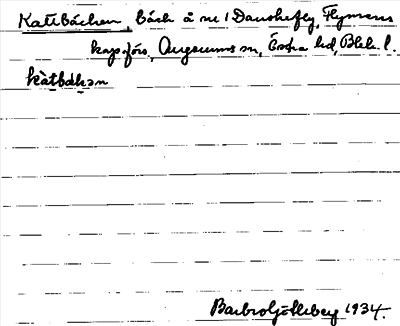 Kattbäcken, bäck å nr 1 Danskefly, Flymens
kapsförs., Augerums sn, Östra hd, Blek. l.
kàtbäkən
Barbro Götleberg 1934.